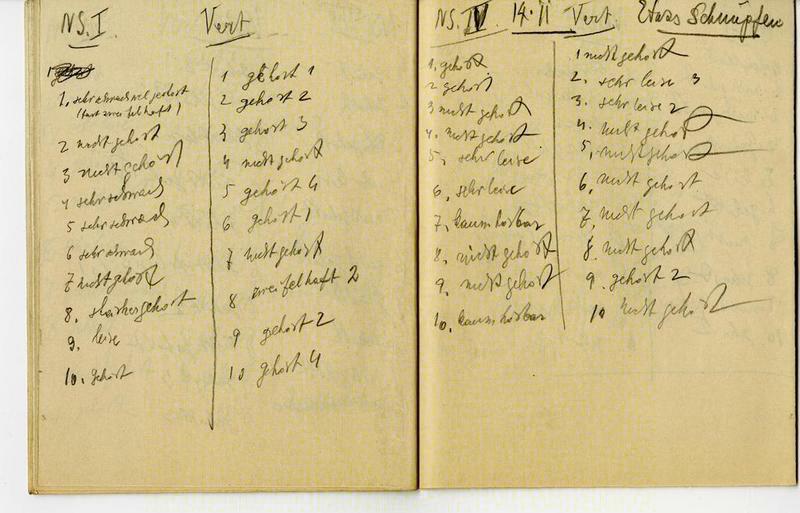 NS. I
Vert
1. sehr schwach gehört
(fast zweifelhaft)
2 nicht gehört
3 nicht gehört
4 sehr schwach
5 sehr schwach
6 sehr schwach
7 nicht gehört
8. stärker gehört
9. leise
10. gehört
1 gehört 1
2 gehört 2
3 gehört 3
4 nicht gehört
5 gehört 4
6 gehört 1
7 nicht gehört
8 zweifelhaft 2
9 gehört 2
10 gehört 4
NS. IV 14. II Vert Etwas Schnupfen
1. gehört
2 gehört
3 nicht gehört
4. nicht gehört
5, sehr leise
6, sehr leise
7, kaum hörbar
8, nicht gehört
9, nicht gehört
10, kaum hörbar
1 nicht gehört
2. sehr leise 3
3. sehr leise 2
4. nicht gehört
5, nicht gehört
6, nicht gehört
7, nicht gehört
8. nicht gehört
9. gehört 2
10 nicht gehört